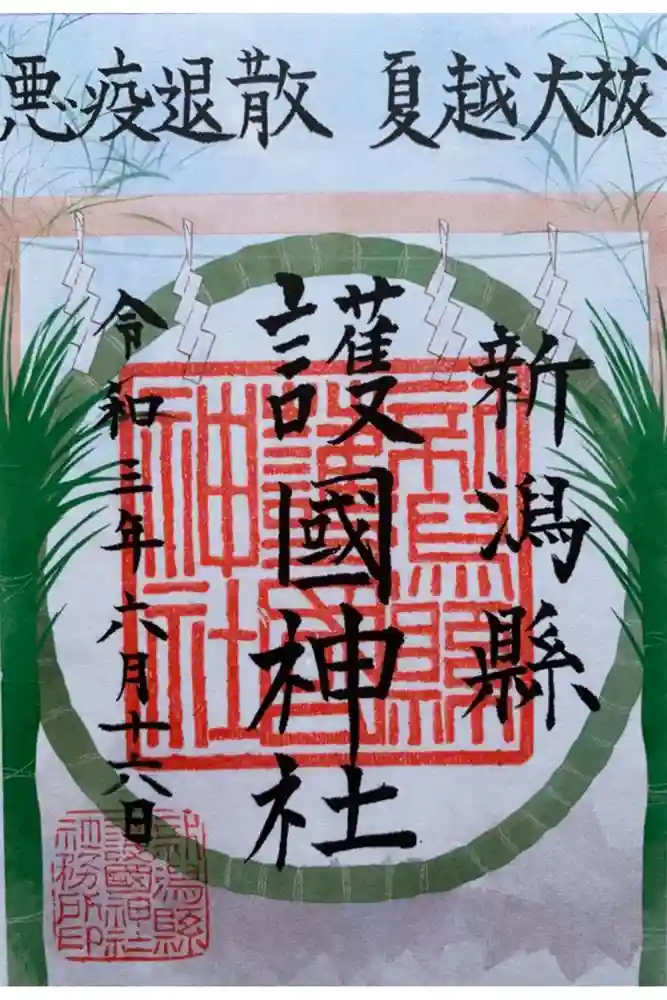 夏越大祓
悪疫退散
新潟縣
護國神社
令和三年六月十六日
新潟縣
護國神社
新潟縣
護國神社
社務所印